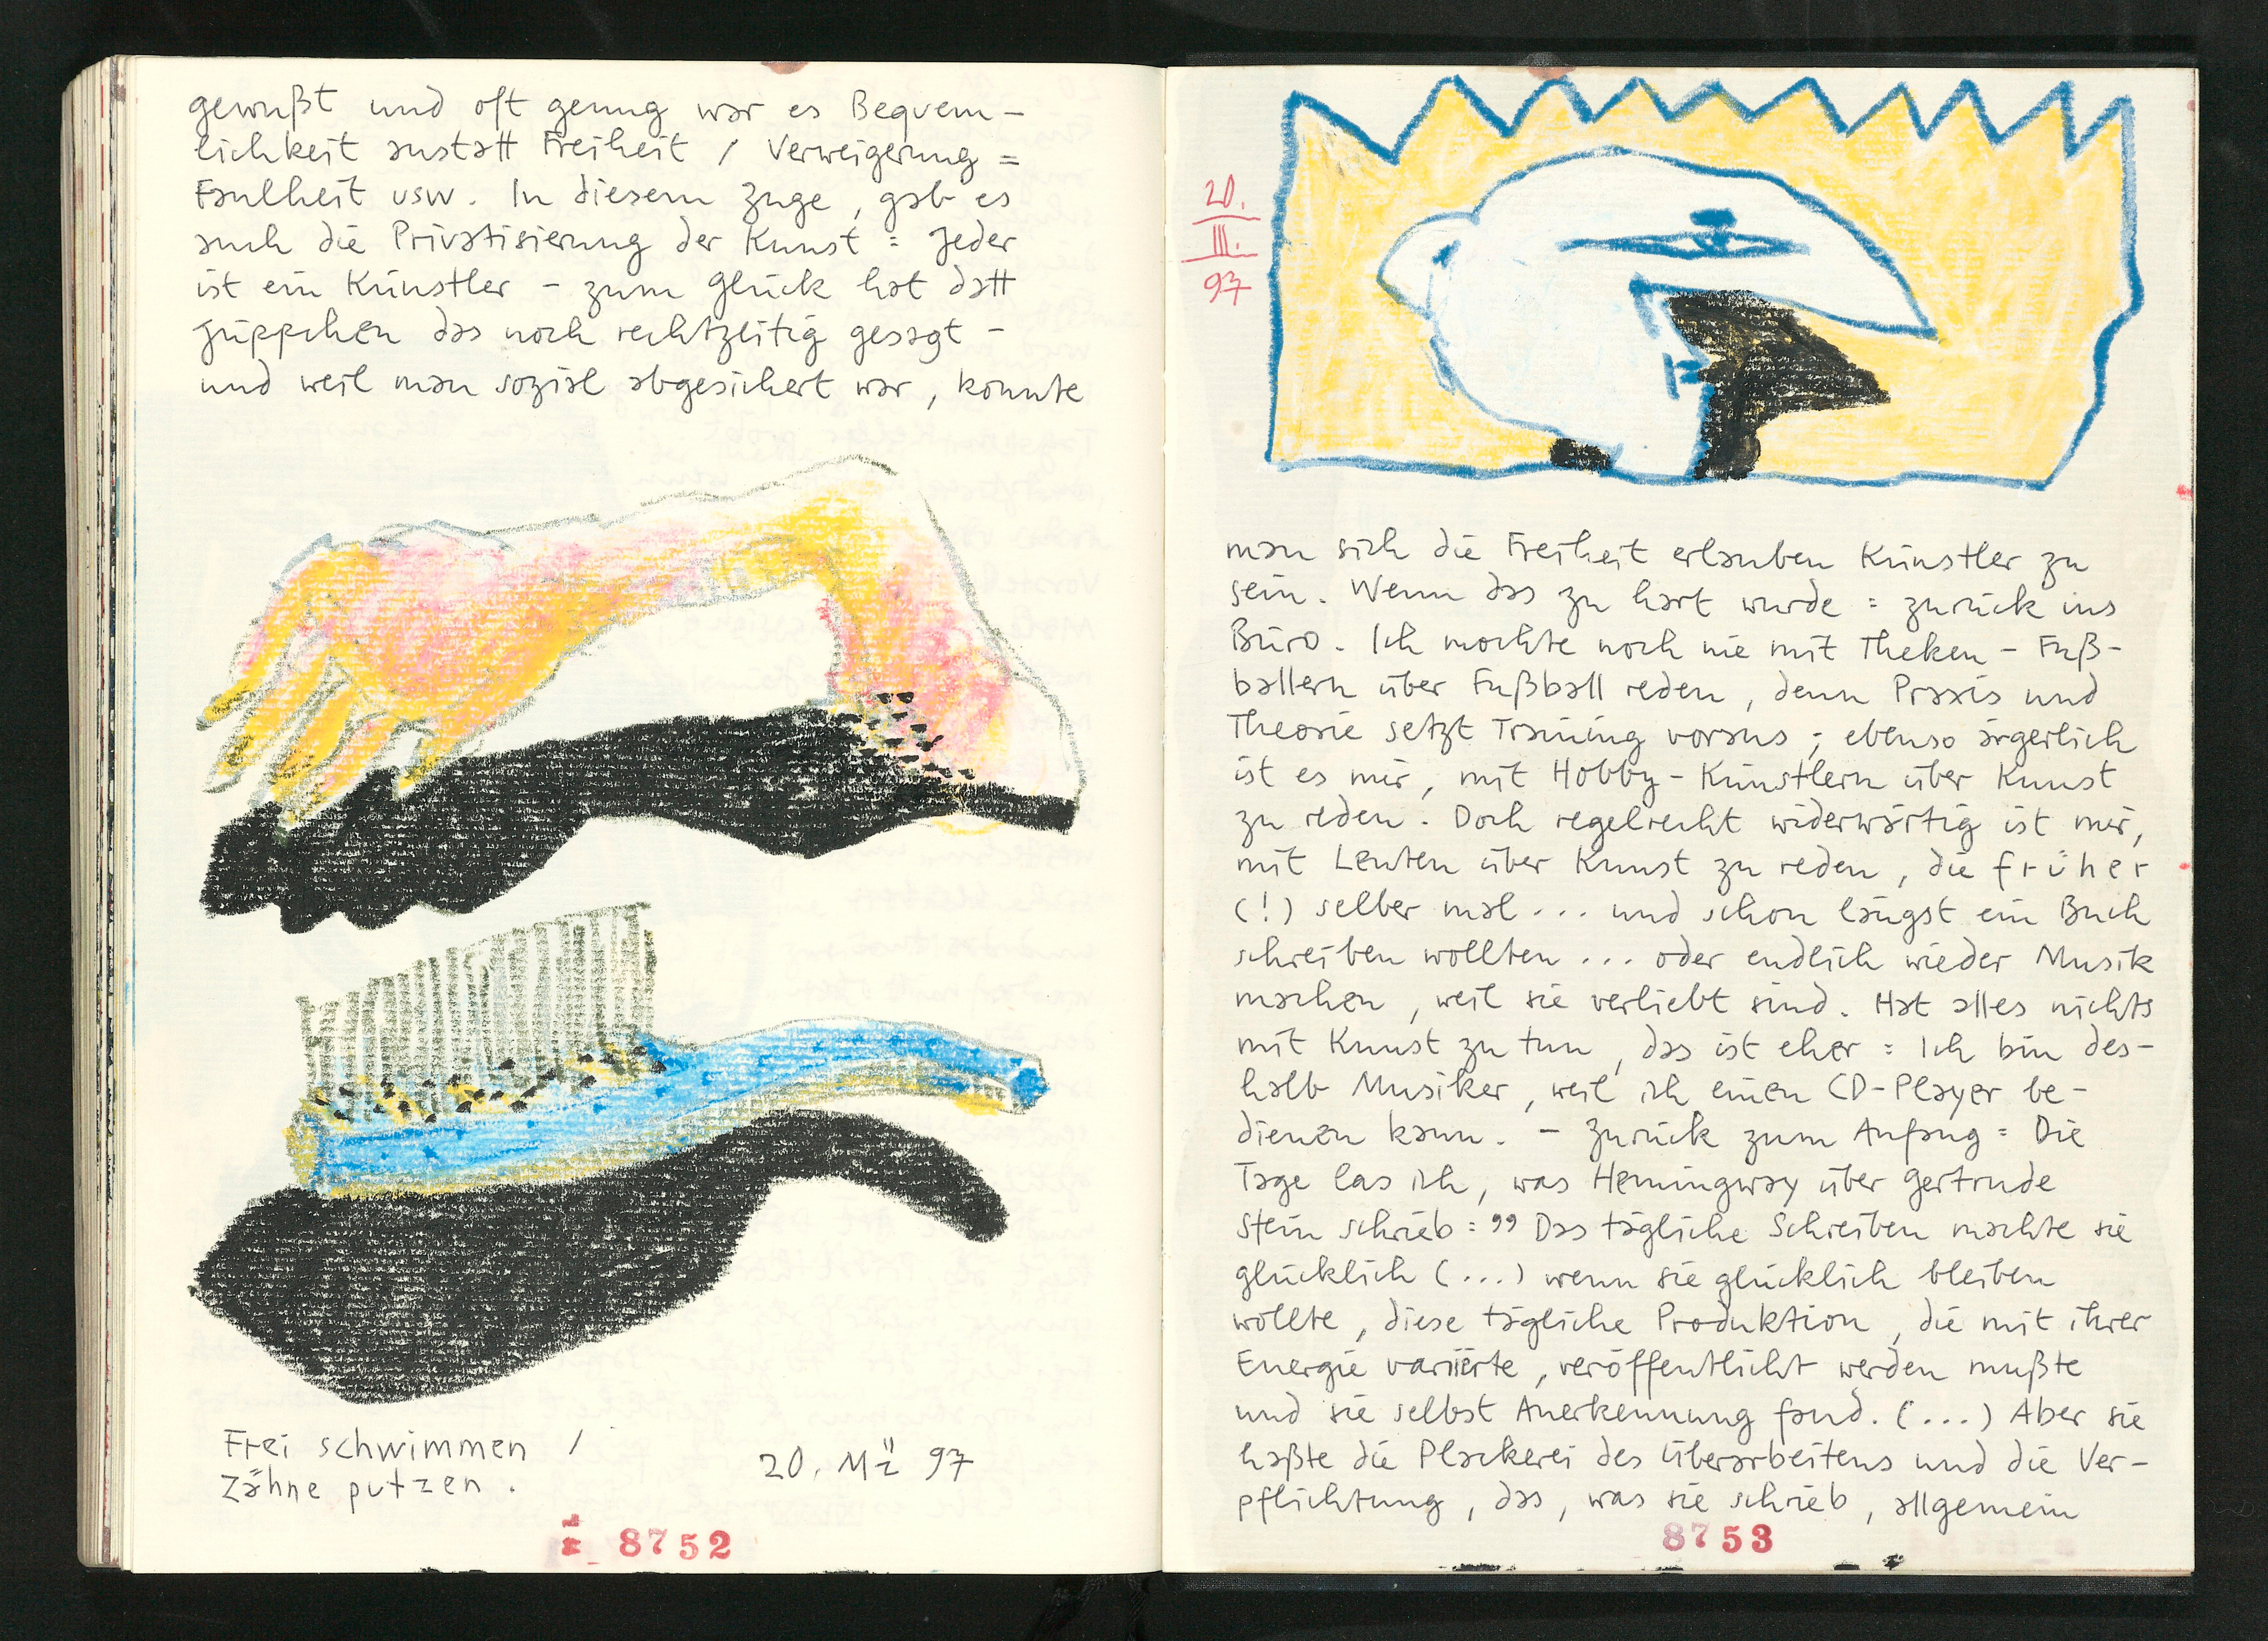 gewußt und oft genug war es Bequem-
lichkeit anstatt Freiheit / Verweigerung =
Faulheit usw. In diesem Zuge, gab es
auch die Privatisierung der Kunst = Jeder
ist ein Künstler - zum Glück hat datt
Jüppchen das noch rechtzeitig gesagt -
und weil man sozial abgesichert war, konnte
Frei schwimmen /
Zähne putzen.
20. Mä 97
8752
20.
III.
97
man sich die Freiheit erlauben Künstler zu
sein. Wenn das zu hart wurde = zurück ins
Büro. Ich mochte noch nie mit Theken-Fuß-
ballern über Fußball reden, denn Praxis und
Theorie setzt Training voraus; ebenso ärgerlich
ist es mir, mit Hobby-Künstlern über Kunst
zu reden. Doch regelrecht widerwärtig ist mir,
mit Leuten über Kunst zu reden, die früher
(!) selber mal... und schon längst ein Buch
schreiben wollten... oder endlich wieder Musik
machen, weil sie verliebt sind. Hat alles nichts
mit Kunst zu tun, das ist eher = Ich bin des-
halb Musiker, weil ich einen CD-Player be-
dienen kann. - Zurück zum Anfang = Die
Tage las ich, was Hemingway über Gertrude
Stein schrieb = " Das tägliche Schreiben machte sie
glücklich (...) wenn sie glücklich bleiben
wollte, diese tägliche Produktion, die mit ihrer
Energie variierte, veröffentlicht werden mußte
und sie selbst Anerkennung fand. (...) Aber sie
haßte die Plackerei des Überarbeitens und die Ver-
pflichtung, das, was sie schrieb, allgemein
8753